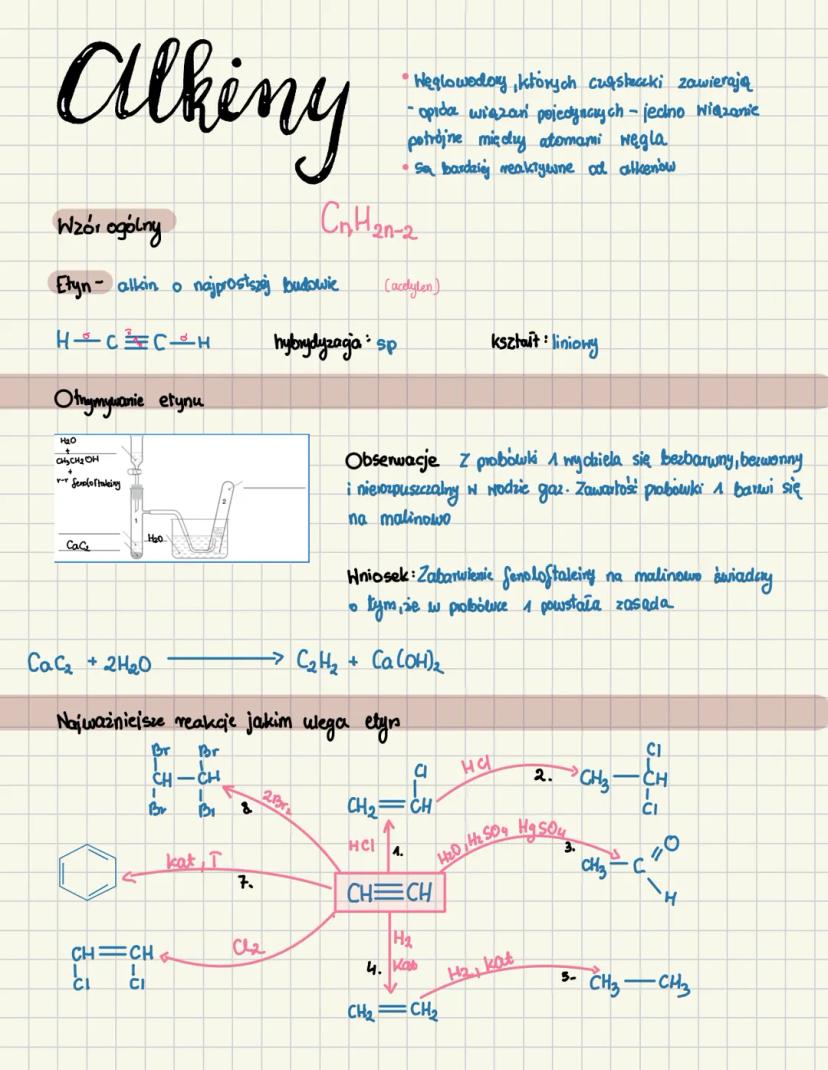 Alkiny
• Węglowodory, których cząsteczki zawierają
- oprócz wiązań pojedynczych - jedno wiązanie
potrójne między atomami węgla
• Są bardziej reaktywne od alkenów
Wzór ogólny CnH2n-2
Etyn - alkin o najprostszej budowie (acetylen)
H — C ≡ C — H hybrydyzacja: sp kształt: liniowy
Otrzymywanie etynu
H2O
+
CH3CH2OH
+
r-r fenoloftaleiny
CaC2
1
H2O
2
Obserwacje Z probówki 1 wydziela się bezbarwny, bezwonny
i nierozpuszczalny w wodzie gaz. Zawartość probówki 1 barwi się
na malinowo
Wniosek: Zabarwienie fenoloftaleiny na malinowo świadczy
o tym, że w probówce 1 powstała zasada
CaC2 + 2H2O → C2H2 + Ca(OH)2
Najważniejsze reakcje jakim ulega etyn
Br Br
CH — CH
Br Br
2Br2
8.
Cl
CH2 = CH
HCl
1.
HCl
2.
Cl
CH3 — CH
Cl
H2O, H2SO4 HgSO4
3.
O
CH3 — C
H
kat, T
7.
CH ≡ CH
Cl2
CH = CH
Cl Cl
H2
4. kat
CH2 = CH2
H2, kat
5.
CH3 — CH3